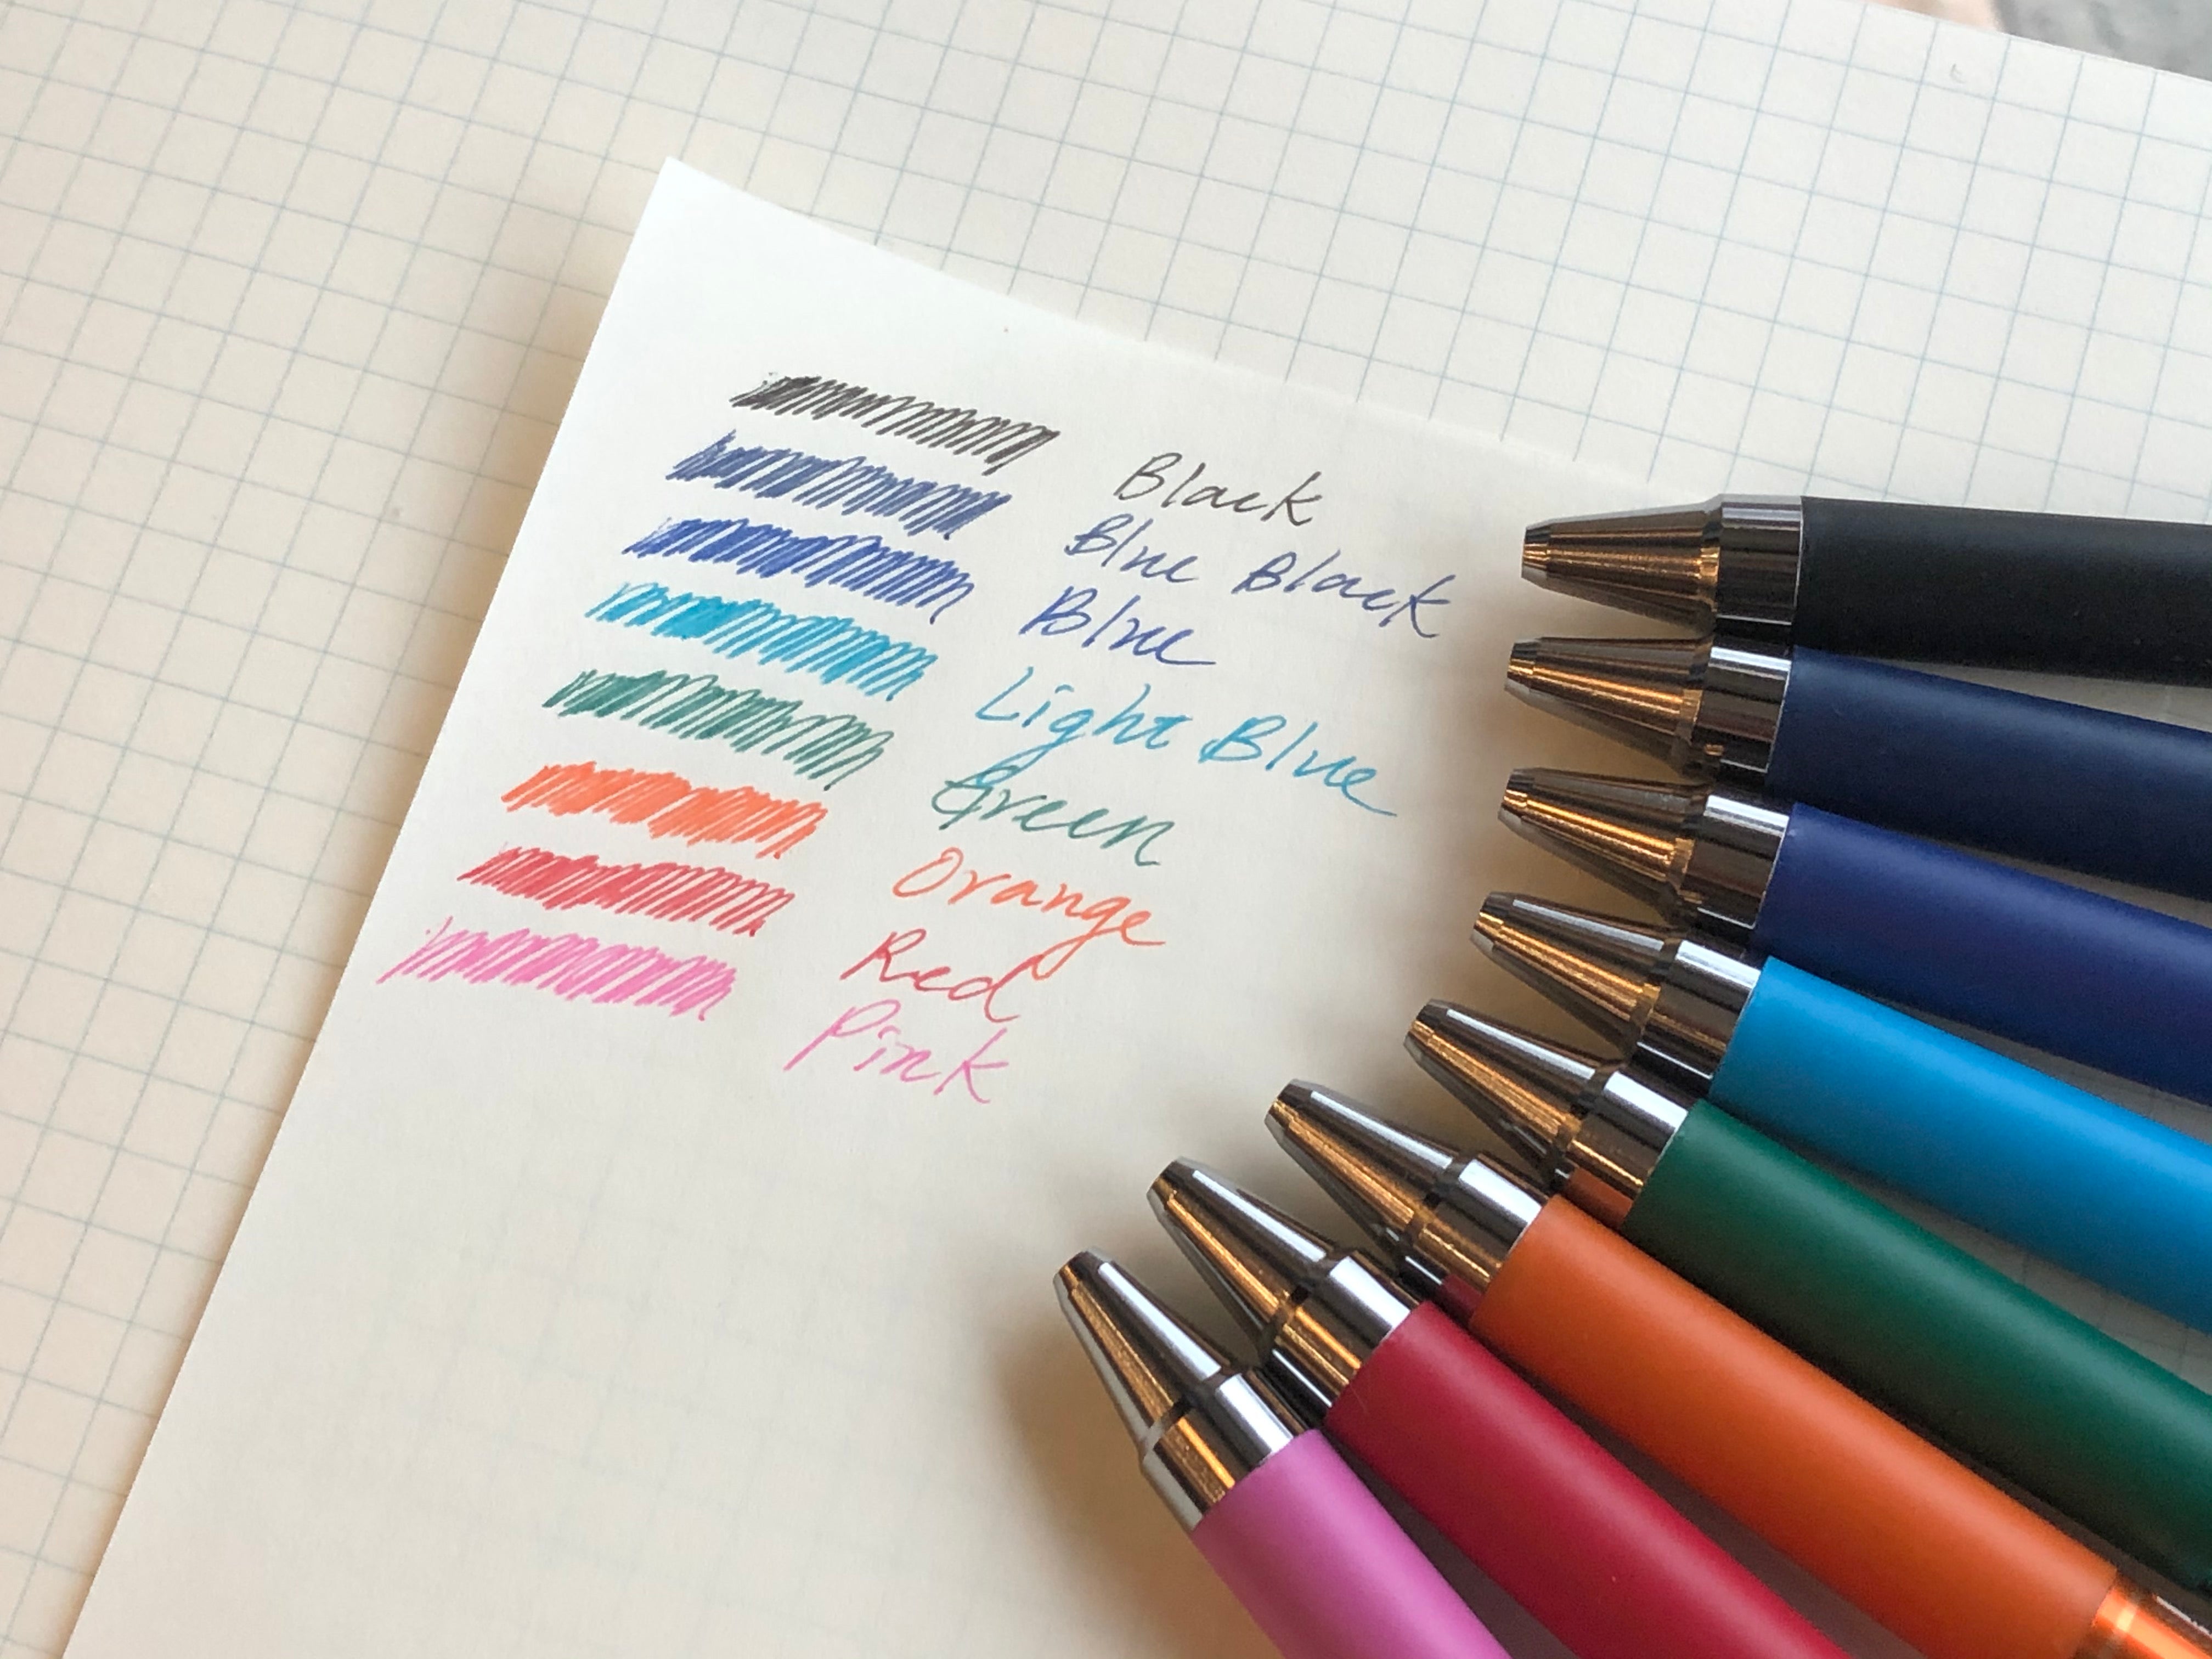 Black
Blue Black
Blue
Light Blue
Green
Orange
Red
Pink